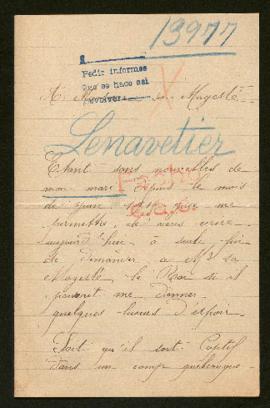 13977
Pedir informes
que se hace así
A Sa Majesté
Lenavetier
Etant sans nouvelles de
mon mari depuis le mois
de je me
permets, de
aujourd'hui à seule fin
de demander a Sa
Majesté le Roi si il
pouvait me donner
quelques lueurs d'espoir.
Soit qu'il soit Captif
dans un camp quelconque